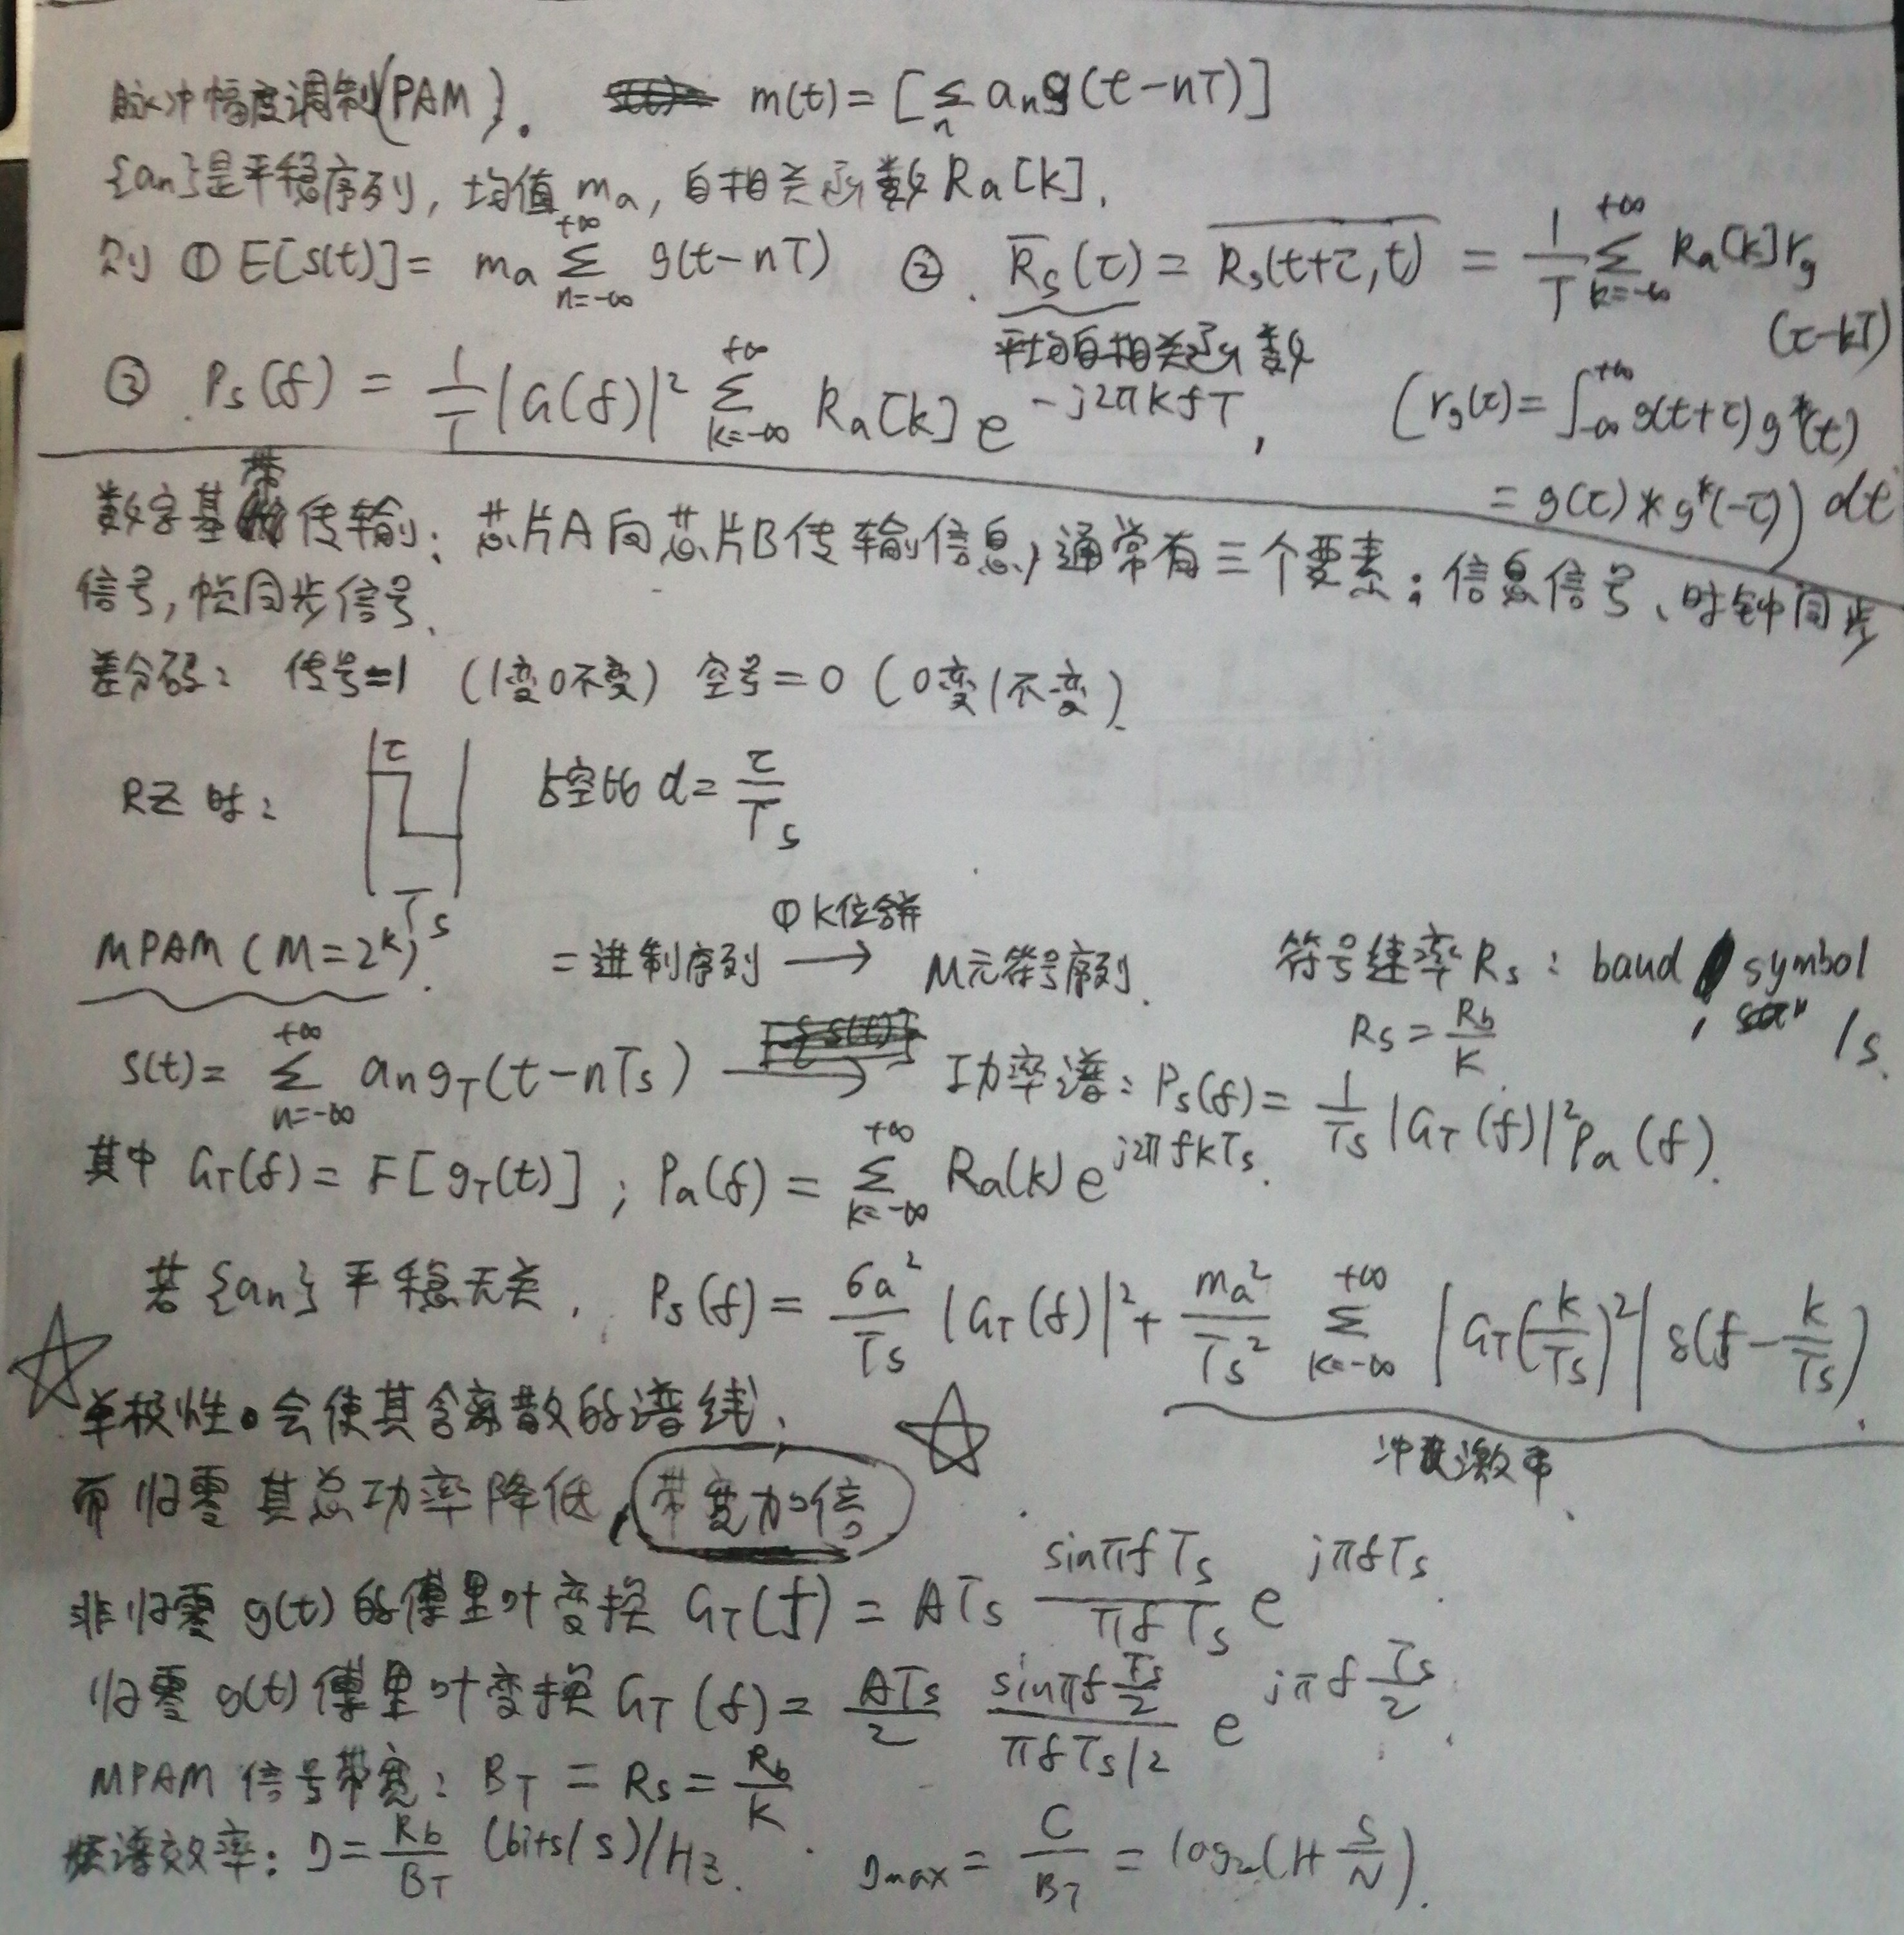 脉冲幅度调制(PAM). m(t)=[∑_n a_n g(t-nT)]
{a_n}是平稳序列, 均值m_a, 自相关函数R_a[k].
则 ① E[s(t)]= m_a ∑_{n=-∞}^{+∞} g(t-nT) ②. \overline{R}_s(τ) = \overline{R_s(t+τ,t)} = \frac{1}{T} ∑_{k=-∞}^{+∞} R_a[k] r_g(τ-kT)
平均自相关函数
③ P_s(f) = \frac{1}{T} |G(f)|^2 ∑_{k=-∞}^{+∞} R_a[k] e^{-j2πkfT}, (r_g(τ)=∫_{-∞}^{+∞} g(t+τ) g^*(t) dt
= g(τ) * g^*(-τ))
数字基带传输: 芯片A向芯片B传输信息, 通常有三个要素: 信息信号、时钟同步
信号, 帧同步信号.
差分码: 传号=1 (1变0不变) 空号=0 (0变1不变).
RZ时: τ T_s 占空比 d=\frac{τ}{T_s}
MPAM (M=2^k). 二进制序列 ①K位合并 → M元符号序列. 符号速率R_s: baud, symbol/s.
R_s=\frac{R_b}{K}.
s(t)= ∑_{n=-∞}^{+∞} a_n g_T(t-nT_s) → 功率谱: P_s(f)= \frac{1}{T_s} |G_T(f)|^2 P_a(f).
其中 G_T(f)= F[g_T(t)]; P_a(f) = ∑_{k=-∞}^{+∞} R_a(k) e^{j2πfkT_s}.
若{a_n}平稳无关, P_s(f)= \frac{σa^2}{T_s} |G_T(f)|^2 + \frac{m_a^2}{T_s^2} ∑_{k=-∞}^{+∞} |G_T(\frac{k}{T_s})^2| δ(f-\frac{k}{T_s}).
☆ 单极性会使其含离散的谱线. ☆
冲激
而归零其总功率降低, 带宽加倍
非归零 g(t)的傅里叶变换 G_T(f) = AT_s \frac{sinπfT_s}{πfT_s} e^{jπfT_s}.
归零 g(t)傅里叶变换 G_T(f)= \frac{AT_s}{2} \frac{sinπf\frac{T_s}{2}}{πfT_s/2} e^{jπf\frac{T_s}{2}}.
MPAM 信号带宽: B_T = R_s = \frac{R_b}{K}
频谱效率: η=\frac{R_b}{B_T} (bits/s)/Hz. η_max = \frac{C}{B_T} = log_2(1+\frac{S}{N}).